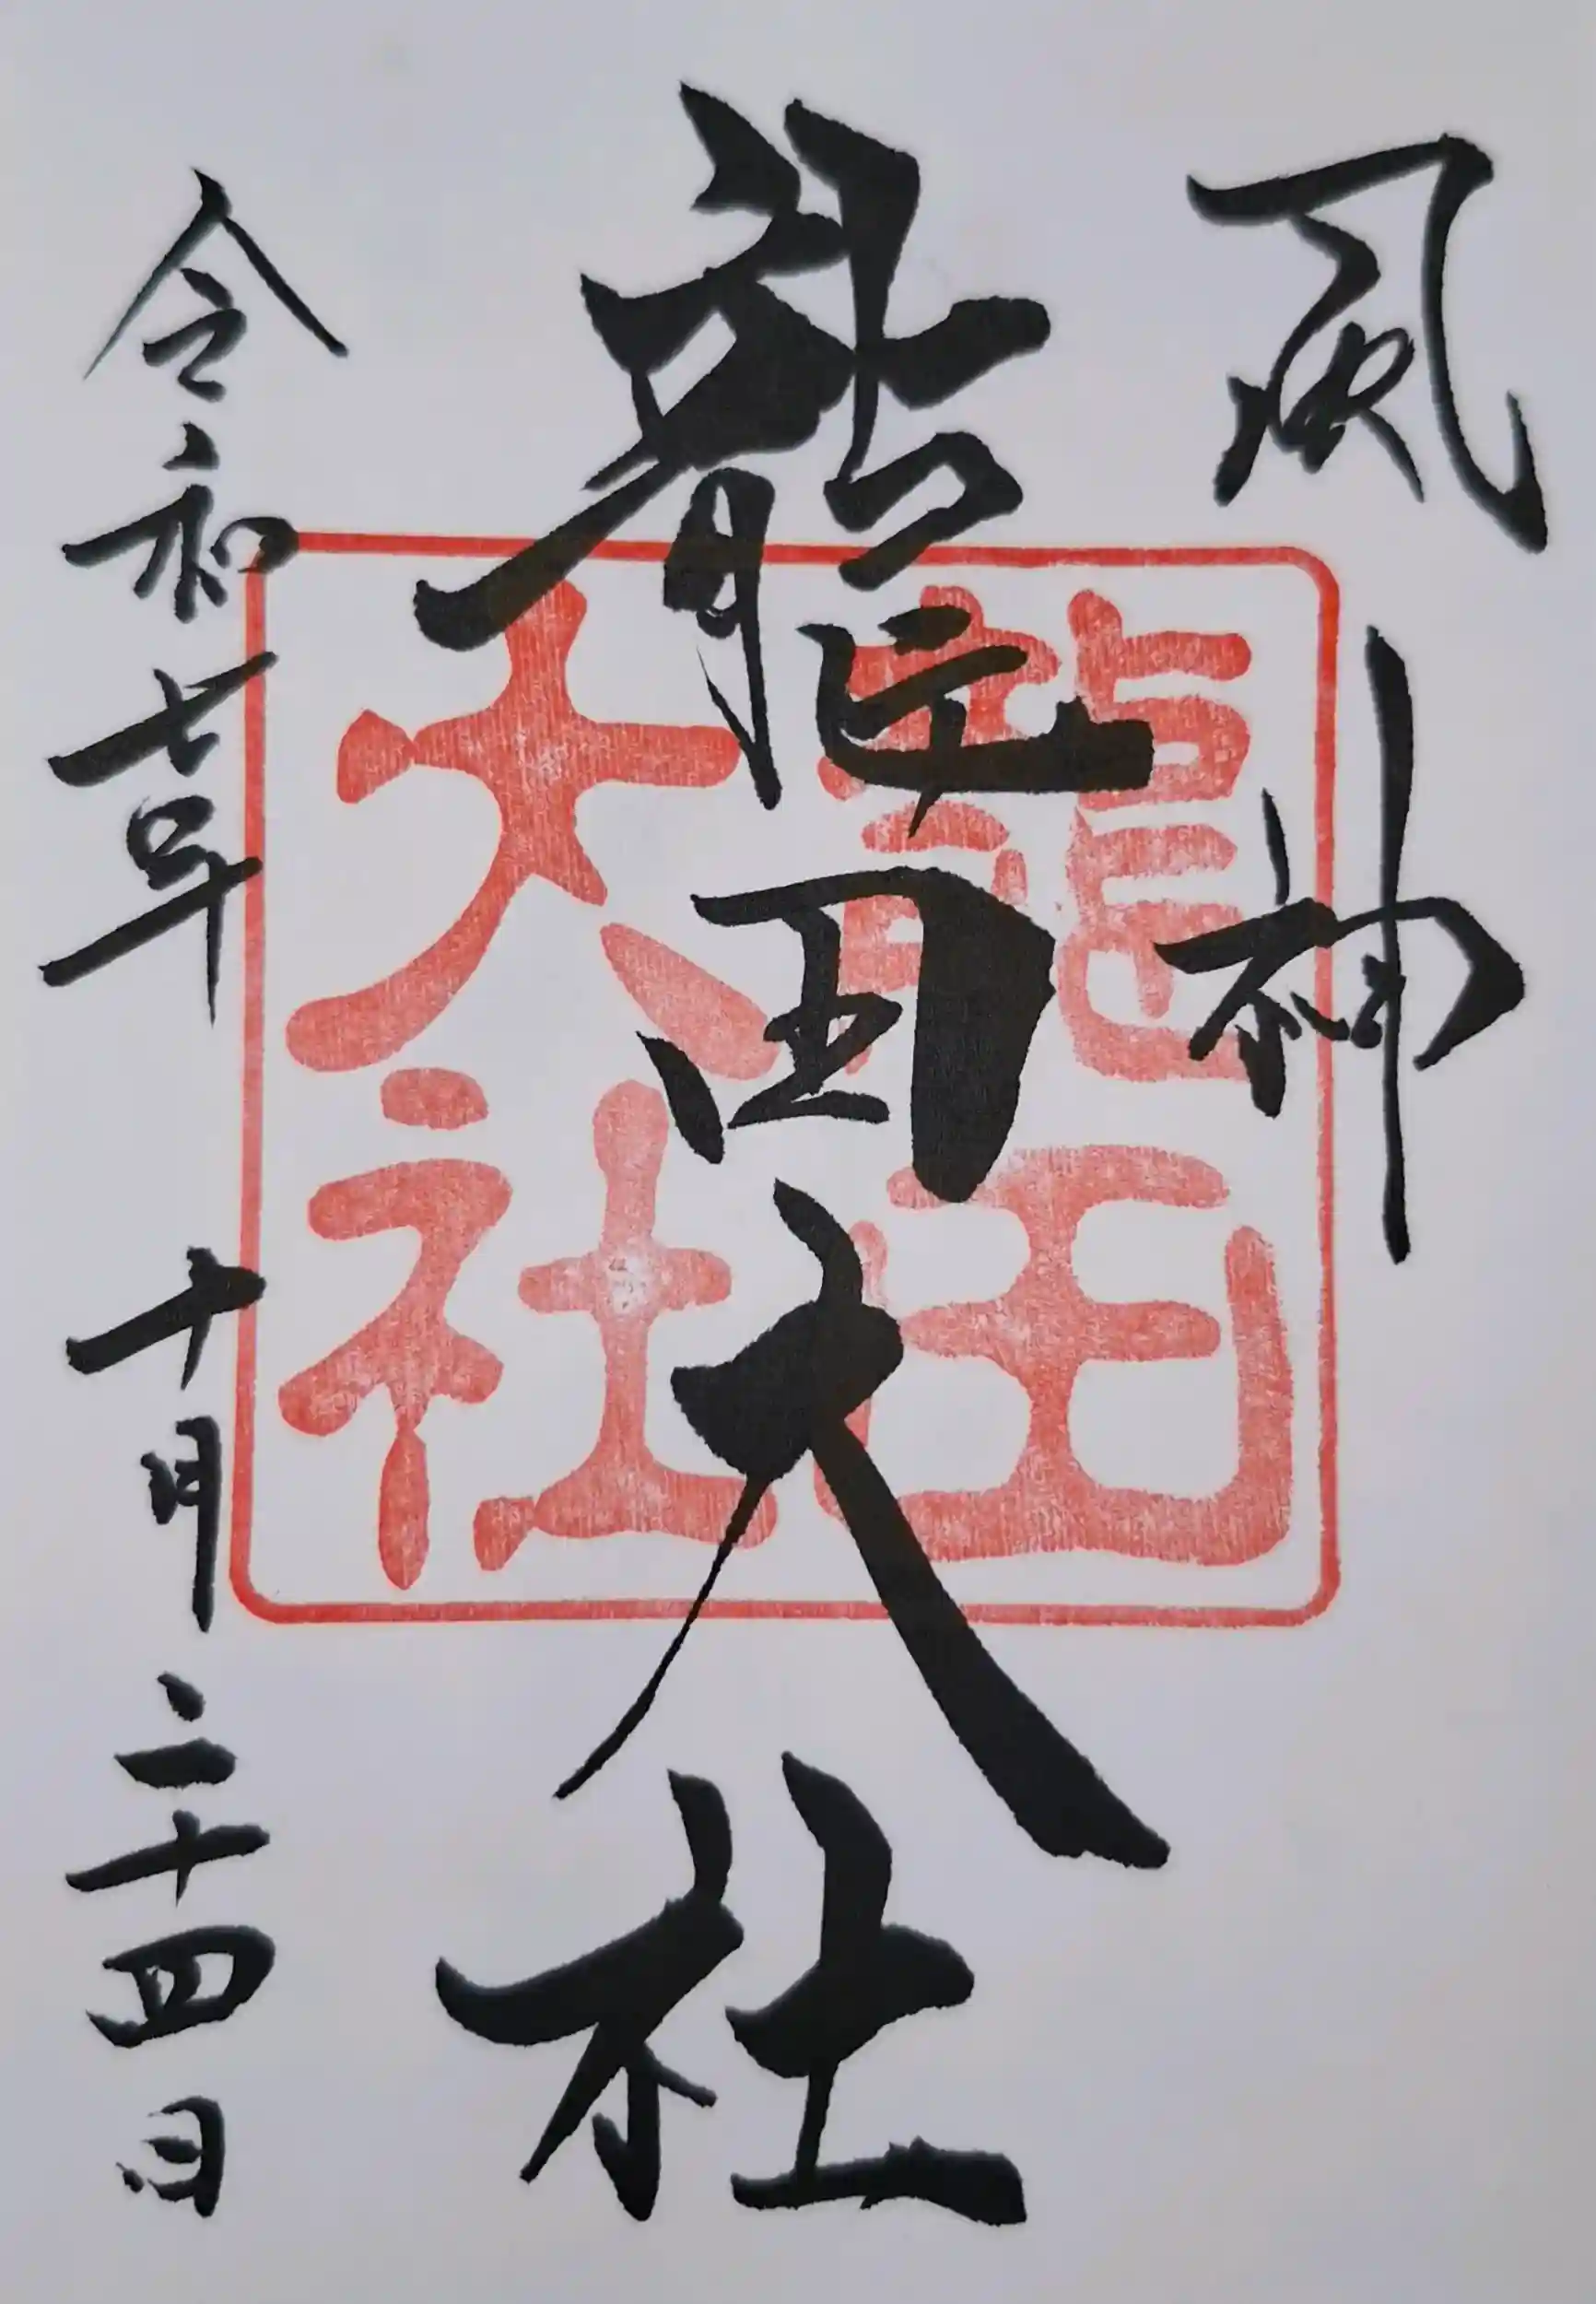 風神
龍田大社
龍田
大社
令和七年 十月二十四日